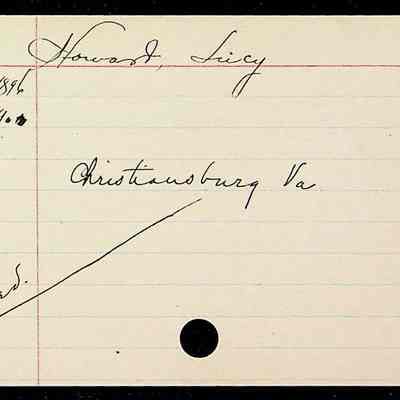 Howard, Lucy
1896
Christiansburg Va